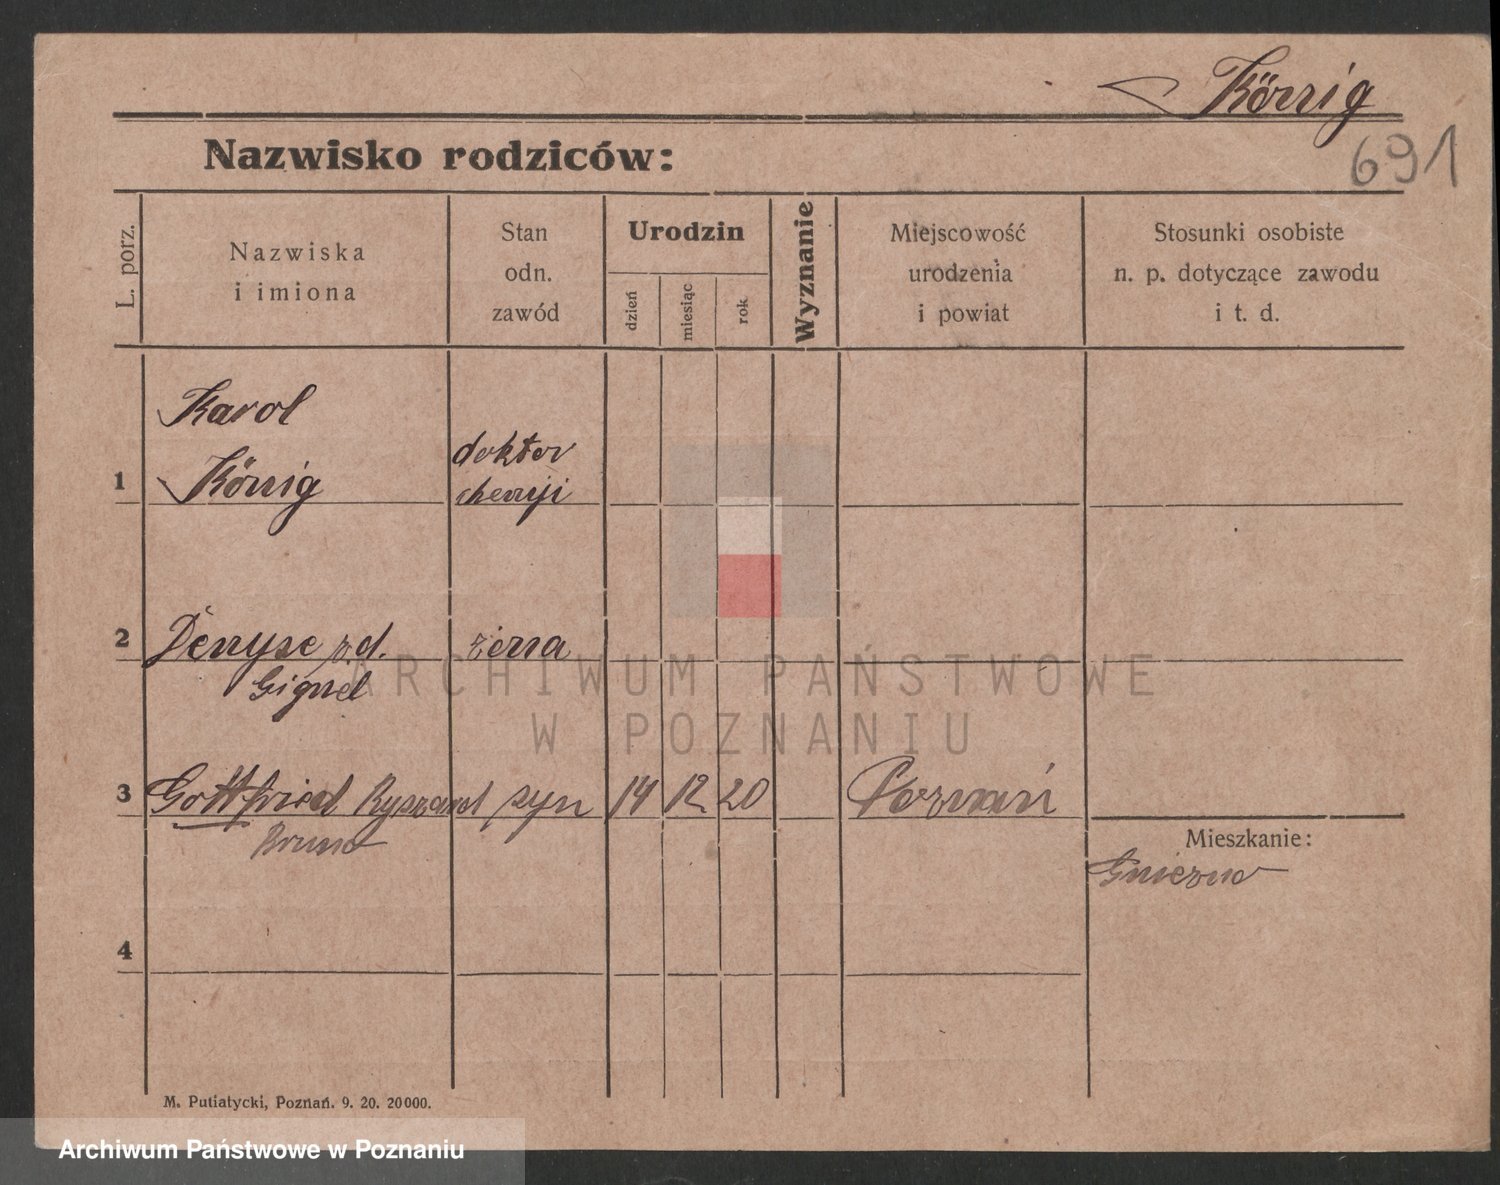 König
691
Nazwisko rodziców:
L. porz.
Nazwiska
i imiona
Stan
odn.
zawód
Urodzin
dzień
miesiąc
rok
Wyznanie
Miejscowość
urodzenia
i powiat
Stosunki osobiste
n. p. dotyczące zawodu
i t. d.
Karol
doktor
1 König chemji
2 Denyse z.d. żona
Gignel
3 Gottfried Ryszard syn 14 12 20 Poznań
Bruno
Mieszkanie:
Gniezno
4
M. Putiatycki, Poznań. 9. 20. 20000.
ARCHIWUM PAŃSTWOWE
W POZNANIU
Archiwum Państwowe w Poznaniu